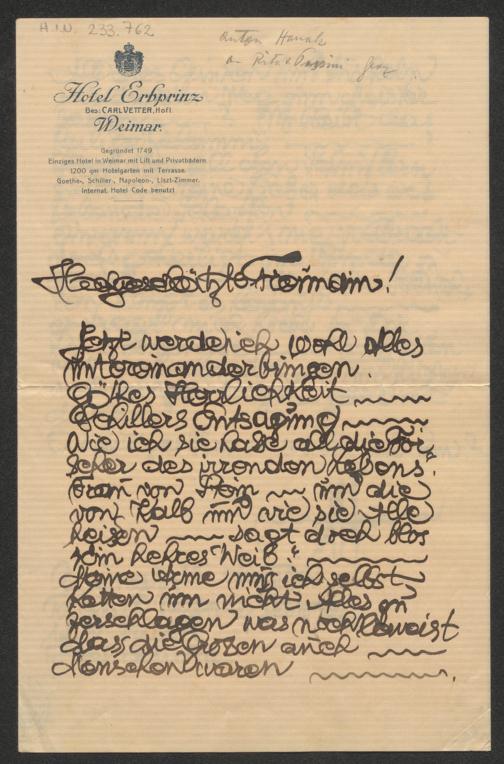 H.I.N. 233.762
Anton Hanak
an Rita Passini Graz
Hotel Erbprinz
Bes: CARL VETTER, Hofl.
Weimar.
Gegründet 1749
Einziges Hotel in Weimar mit Lift und Privatbädern
1200 qm Hotelgarten mit Terrasse.
Goethe-, Schiller-, Napoleon-, Liszt-Zimmer.
Internat. Hotel Code benutzt
Hochgeschätzte Freundin!
Jetzt werde ich wohl Alles
untereinanderbringen.
Götes Herrlichkeit
Schillers Entsagung
Wie ich sie hasse all die For-
scher des irrenden Lebens.
Frau von Stein um die
von Kalb und wie sie Alle
heisen sagt doch blos
"ein hehres Weib"
Meine Arme mus ich selbst
halten um nicht Alles zu
zerschlagen was noch beweist
dass die Grosen auch
Menschen waren